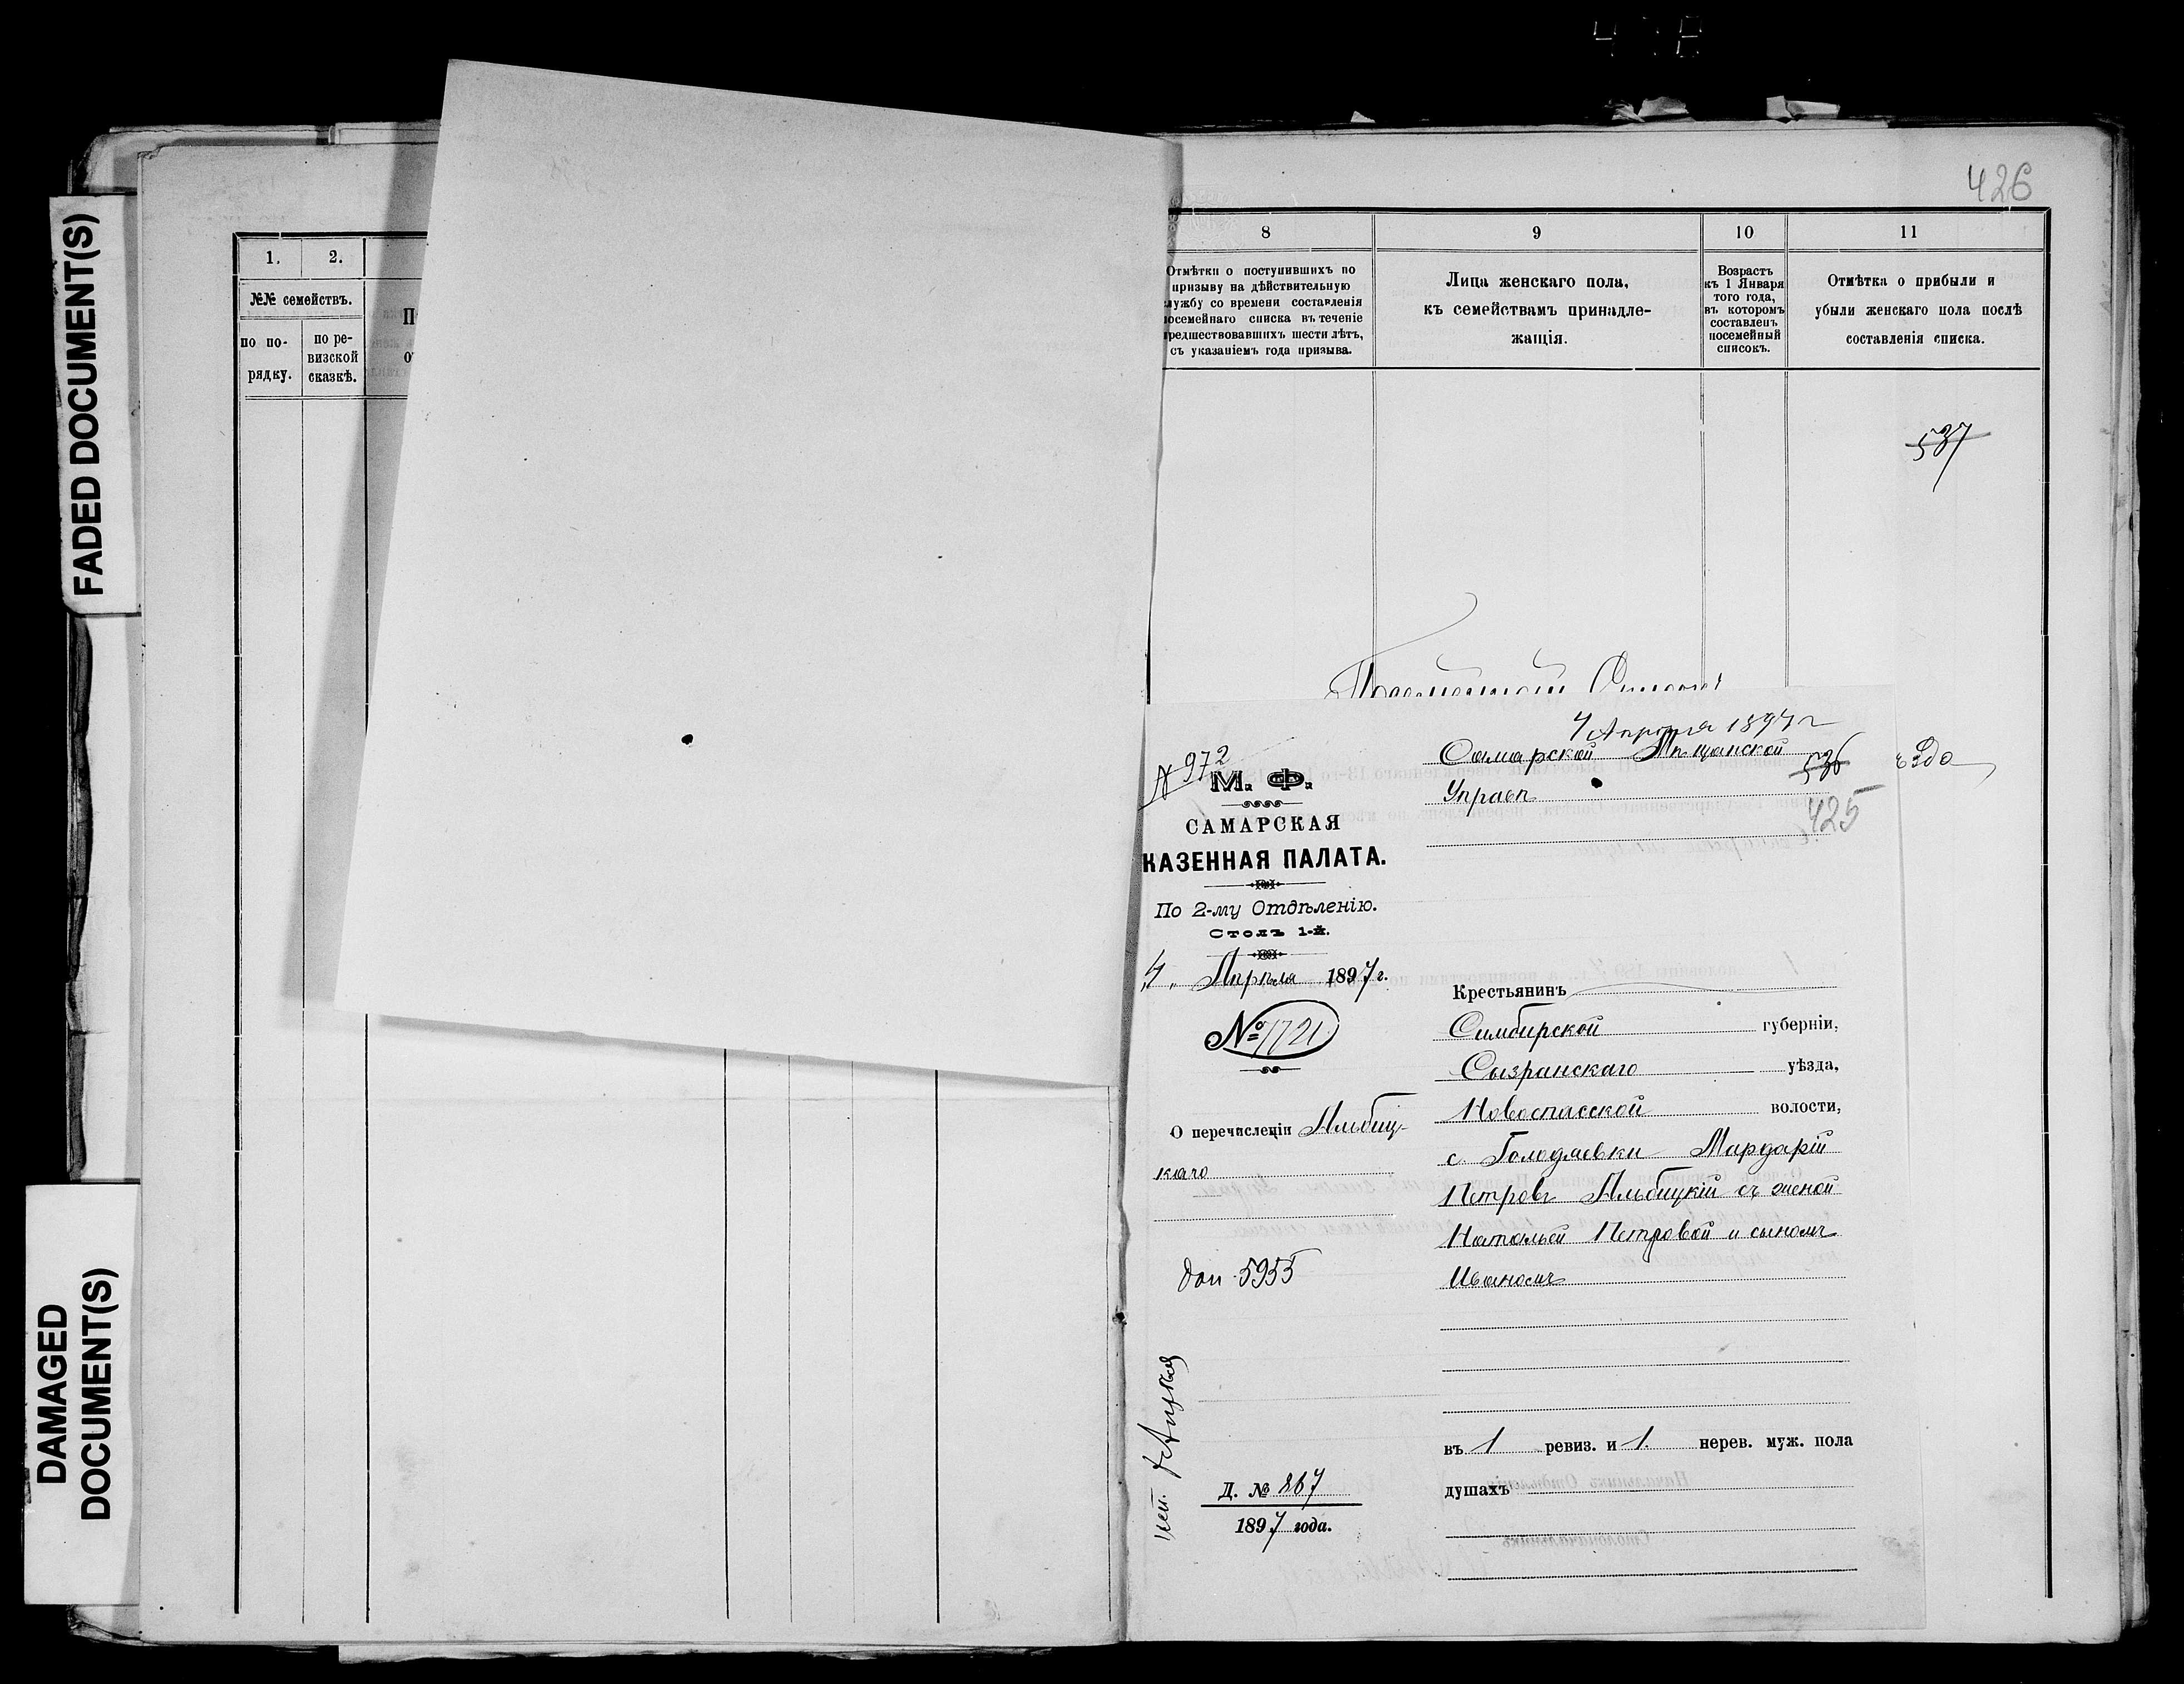 FADED DOCUMENT(S)
DAMAGED
DOCUMENT(S)
426
1.
2.
№№ семействъ.
по по-
рядку.
по ре-
визской
сказкѣ.
8
Отмѣтки о поступившихъ по
призыву на дѣйствительную
службу со времени составленія
посемейнаго списка въ теченіе
предшествовавшихъ шести лѣтъ,
съ указаніемъ года призыва.
9
Лица женскаго пола,
къ семействамъ принадле-
жащія.
10
Возрастъ
къ 1 Января
того года,
въ которомъ
составленъ
посемейный
списокъ.
11
Отмѣтка о прибыли и
убыли женскаго пола послѣ
составленія списка.
537
4 Апрѣля 1897 г
№ 972
М. Ф.
САМАРСКАЯ
КАЗЕННАЯ ПАЛАТА.
По 2-му Отдѣленію.
Столъ 1-й.
„4„ Апрѣля 1897 г.
№ 1721
О перечисленіи Альбиц-
каго
доп. 5955
Д. № 867
1897 года.
Самарской Мѣщанской
Управѣ
536
425
Крестьянинъ
Симбирской губерніи,
Сызранскаго уѣзда,
Новоспасской волости,
с. Голодяевки Мардарій
Петровъ Альбицкій съ женой
Натальей Петровой и сыномъ
Иваномъ
въ 1 ревиз. и 1. нерев. муж. пола
душахъ